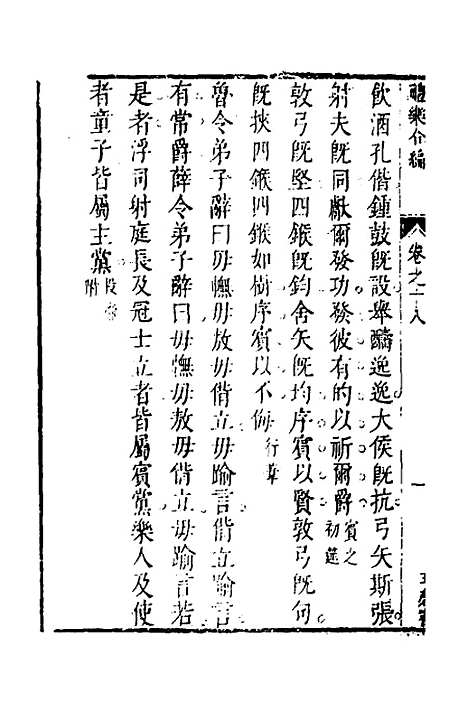 禮樂合編
卷之二八
一
飲酒孔偕鍾鼓旣設舉醻逸逸大侯旣抗弓矢斯張
射夫旣同獻爾發功發彼有的以祈爾爵賓之初筵
敦弓旣堅四鍭旣鈞舍矢旣均序賓以賢敦弓旣句
旣挾四鍭四鍭如樹序賓以不侮行葦
魯令弟子辭曰毋憮毋敖毋偝立毋踰言偝立踰言
有常爵薛令弟子辭曰毋憮毋敖毋偝立毋踰言若
是者浮司射庭長及冠士立者皆屬賓黨樂人及使
者童子皆屬主黨投壺附